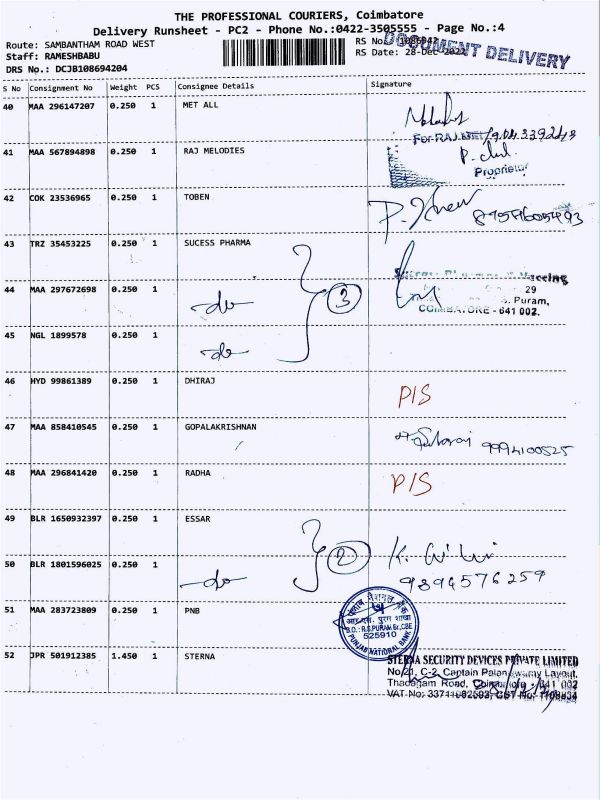 THE PROFESSIONAL COURIERS, Coimbatore
Delivery Runsheet - PC2 - Phone No.:0422-3505555 - Page No.:4
Route: SAMBANTHAM ROAD WEST
RS No.
DOCUMENT DELIVERY
Staff: RAMESHBABU
RS Date: 28-Dec-2022
DRS No.: DCJB108694204
S No Consignment No Weight PCS Consignee Details Signature
40 MAA 296147207 0.250 1 MET ALL
41 MAA 567894898 0.250 1 RAJ MELODIES
For RAJ
Proprietor
42 COK 23536965 0.250 1 TOBEN
43 TRZ 35453225 0.250 1 SUCESS PHARMA
44 MAA 297672698 0.250 1 -do- 3
29
. Puram,
COIMBATORE - 641 002.
45 NGL 1899578 0.250 1 -do-
46 HYD 99861389 0.250 1 DHIRAJ P/S
47 MAA 858410545 0.250 1 GOPALAKRISHNAN 9994100525
48 MAA 296841420 0.250 1 RADHA P/S
49 BLR 1650932397 0.250 1 ESSAR 2
50 BLR 1801596025 0.250 1 -do- 9894576259
51 MAA 283723809 0.250 1 PNB
पंजाब नैशनल बैंक
आर.एस. पुरम शाखा
B.O.: R.S.PURAM Br, CBE
525910
PUNJAB NATIONAL BANK
52 JPR 501912385 1.450 1 STERNA
STERNA SECURITY DEVICES PRIVATE LIMITED
No/21, C-2, Captain Palaniswamy Layout,
Thadagam Road, Coimbatore - 641 002